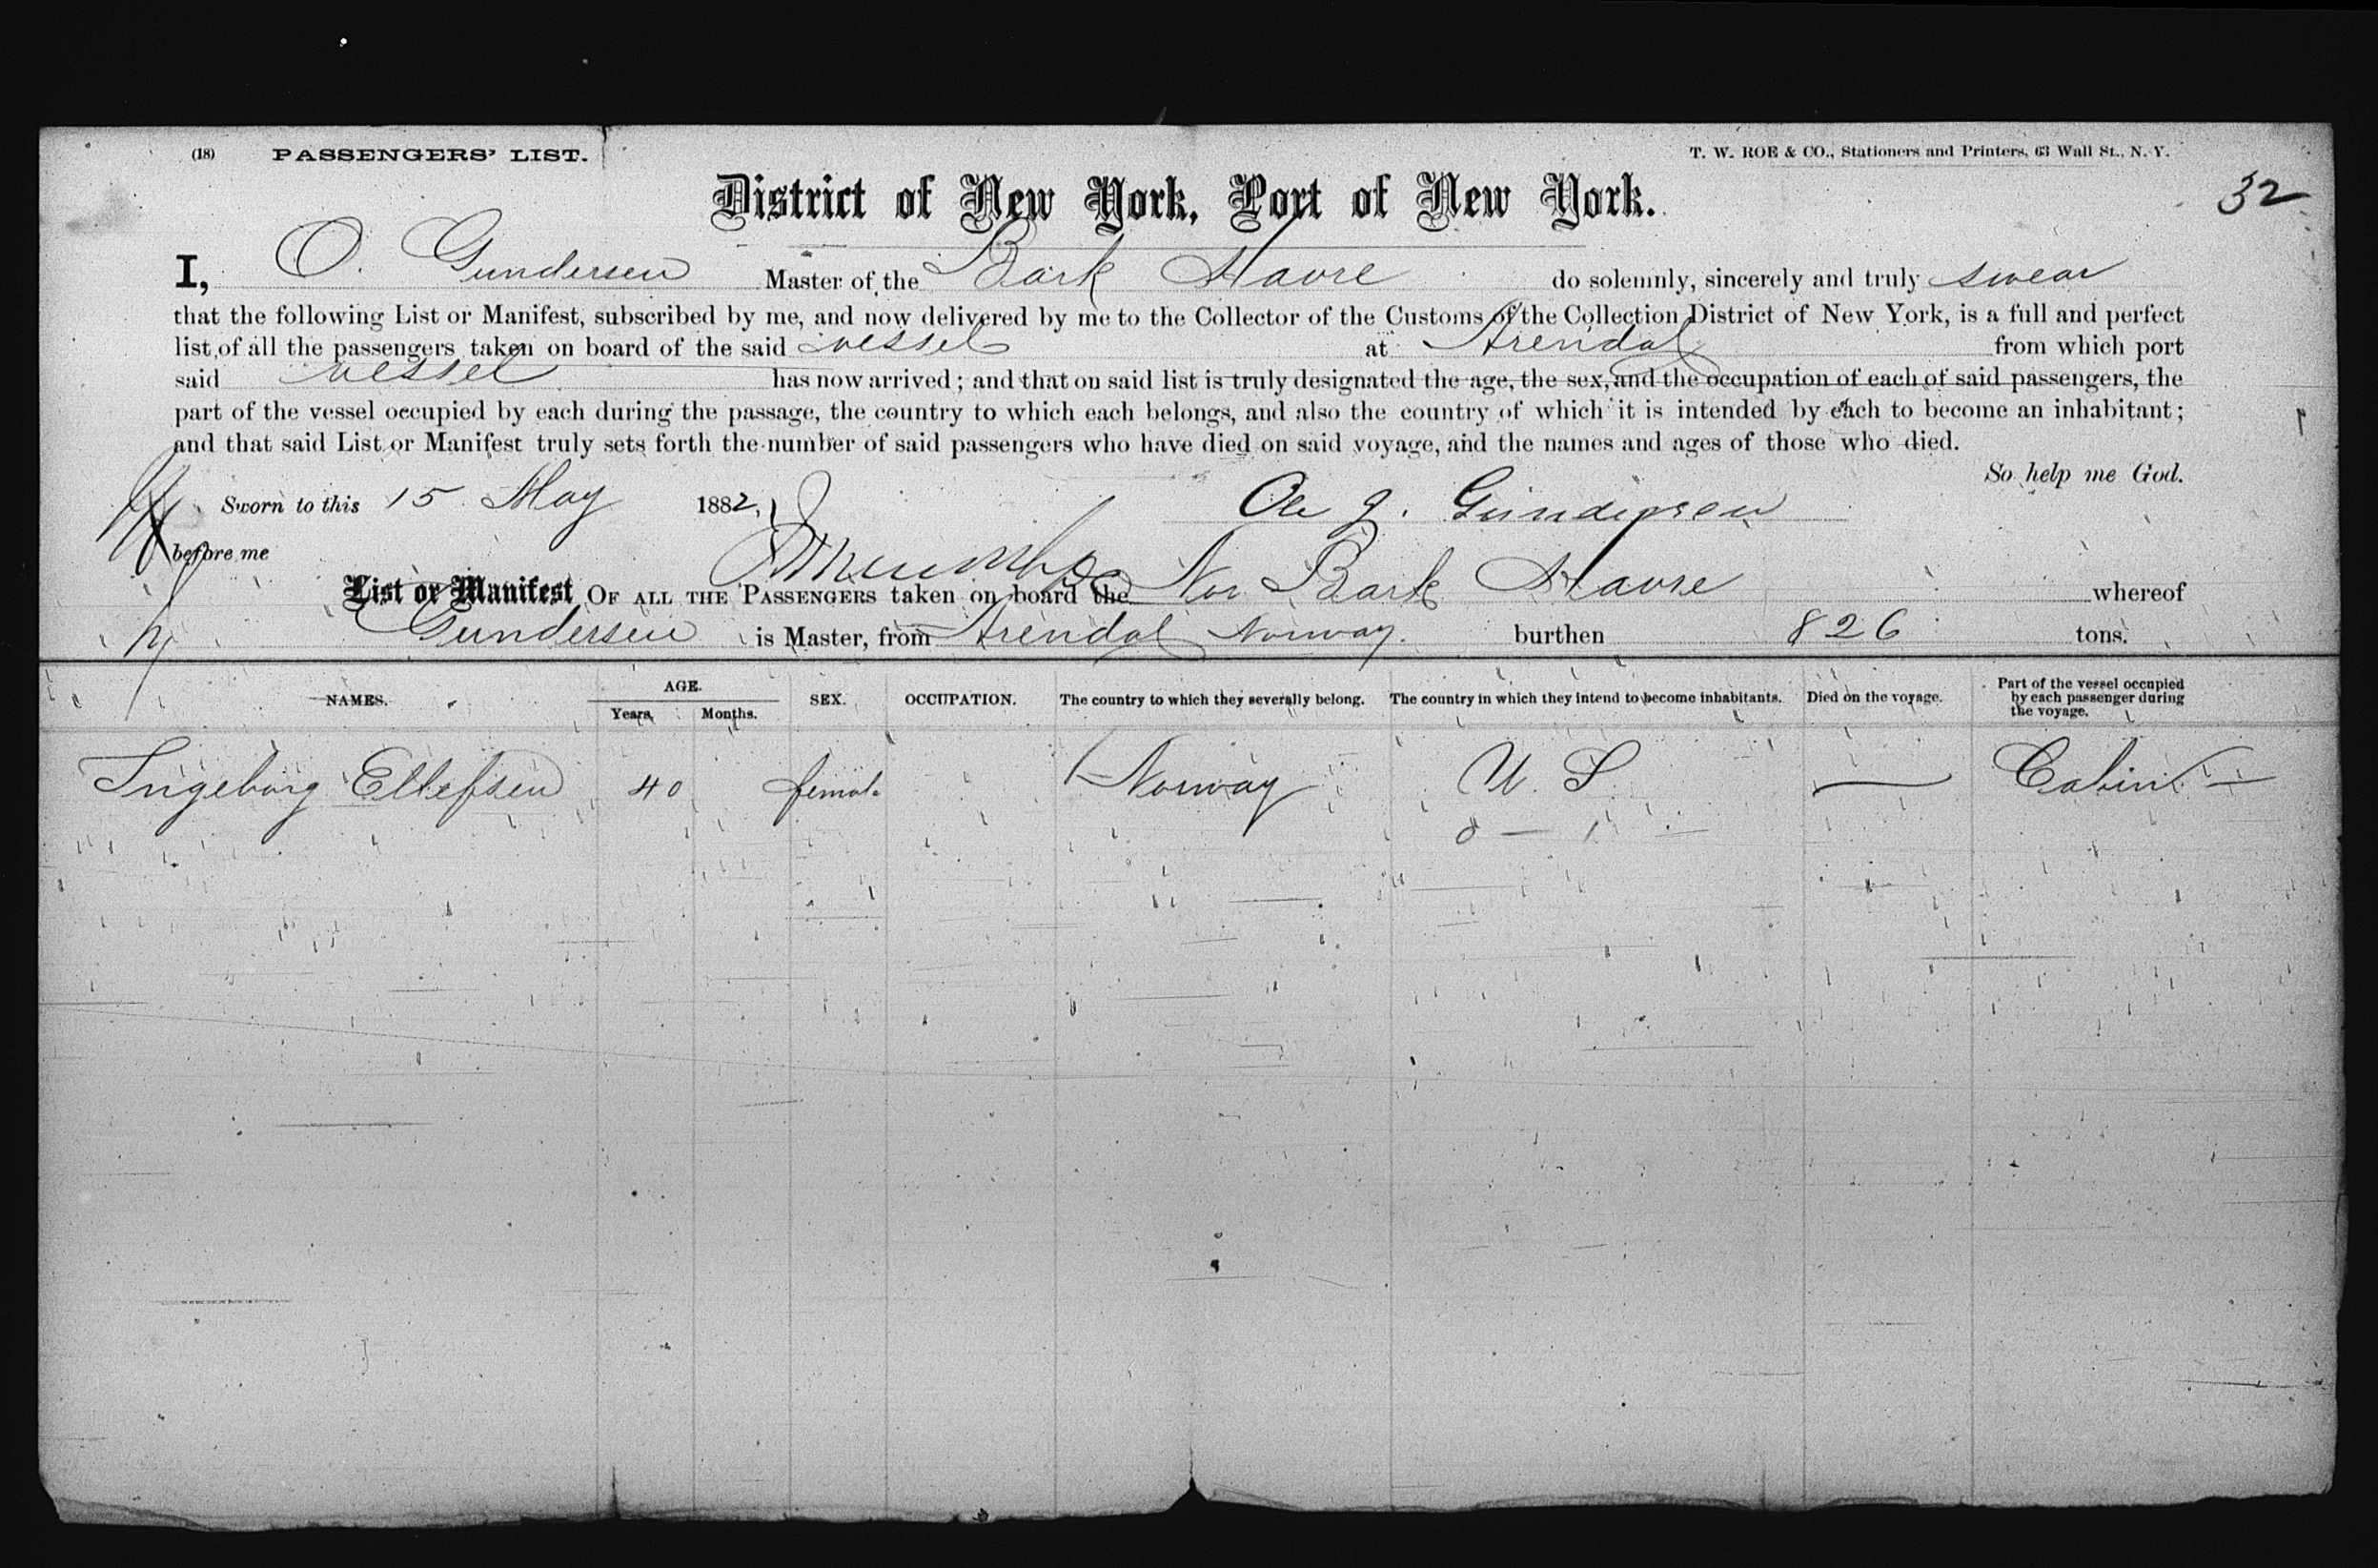 (18) PASSENGERS' LIST. T. W. ROE & CO., Stationers and Printers, 63 Wall St., N. Y.
District of New York, Port of New York. 32
I, O. Gundersen Master of the Bark Havre do solemnly, sincerely and truly swear
that the following List or Manifest, subscribed by me, and now delivered by me to the Collector of the Customs of the Collection District of New York, is a full and perfect
list of all the passengers taken on board of the said vessel at Arendal from which port
said vessel has now arrived; and that on said list is truly designated the age, the sex, and the occupation of each of said passengers, the
part of the vessel occupied by each during the passage, the country to which each belongs, and also the country of which it is intended by each to become an inhabitant;
and that said List or Manifest truly sets forth the number of said passengers who have died on said voyage, and the names and ages of those who died.
So help me God.
Sworn to this 15 May 1882, Ole J. Gundersen
before me
List or Manifest OF ALL THE PASSENGERS taken on board the Nor Bark Havre whereof
Gundersen is Master, from Arendal Norway. burthen 826 tons.
NAMES. AGE. Years. Months. SEX. OCCUPATION. The country to which they severally belong. The country in which they intend to become inhabitants. Died on the voyage. Part of the vessel occupied by each passenger during the voyage.
Ingeborg Ellefsen 40 female Norway U. S. — Cabin —
0 — 1